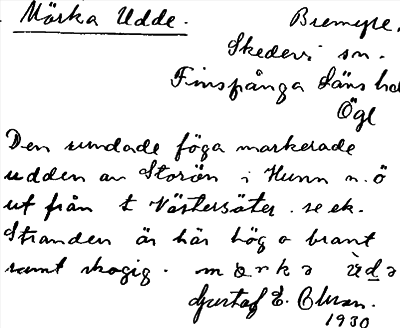 Mörka Udde. Bremyre.
Skedevi sn.
Finspånga Läns hd
Ögl
Den rundade föga markerade
udden av Storön i Hunn n.ö
ut från t Västersäter. se ek.
Stranden är här hög o brant
samt skogig.
Gustaf E.
1930